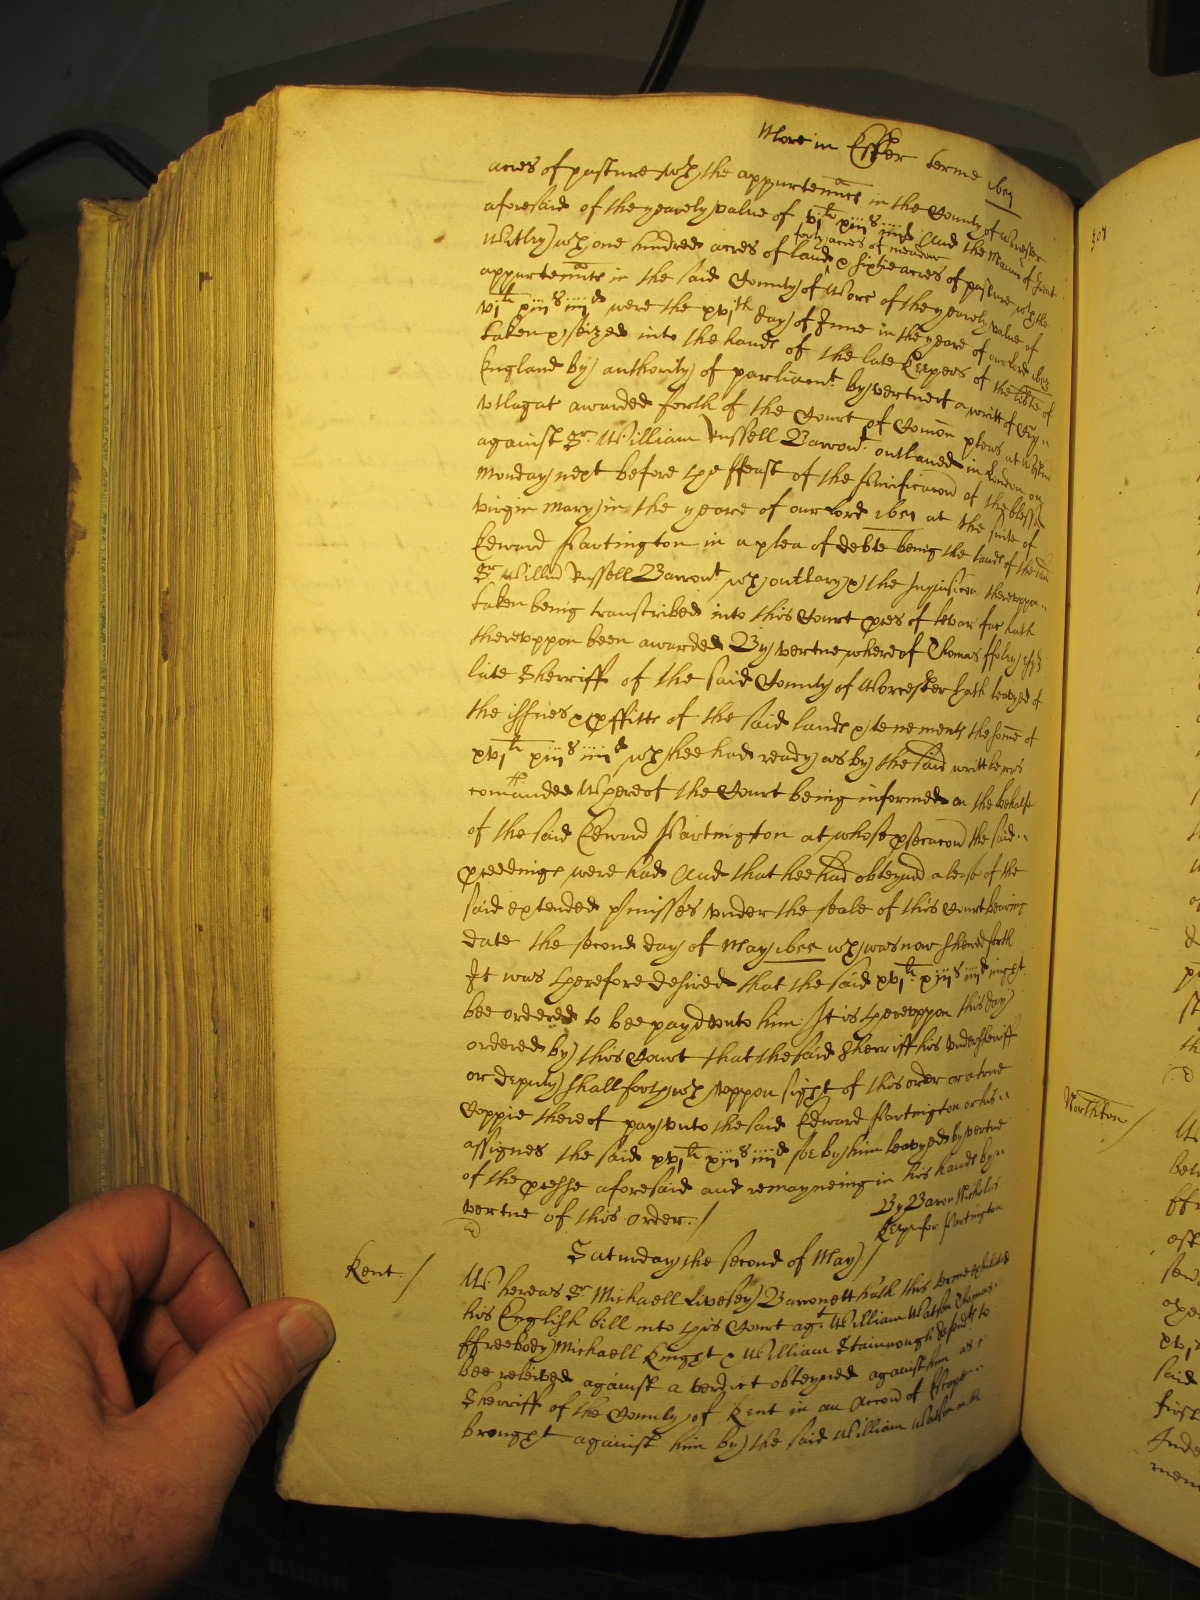 More in Easter terme 1657
acres of pasture wth the appurtenncs in the County of Worcester
aforesaid of the yearely value of vjli xiijs iiijd And the Mannor of great
forty acres of meadow
Witley wth one hundred acres of land & sixtie acres of pasture wth the
appurtenncs in the said County of Worc of the yearely value of
vjli xiijs iiijd were the xvjth day of June in the yeare of our Lord
taken & seized into the hands of the late Keepers of the libtie of
England by authority of parliamt by vertue of a writt of
vtlagat awarded forth of the Court of Comon pleas at Westm
against Sr. William Russell Barront. outlawed in London on
Monday next before the ffeast of the Purificacon of the blessed
virgin Mary in the yeare of our Lord 1651 at the suite of
Edward Partington in a plea of debte being the lands of the said
Sr. Willm Russell Barront. wch outlary & the Inquisicon thereuppon
taken being transcribed into this Court pres of levar fac hath
thereuppon been awarded By vertue whereof Thomas ffoley esqr
late Sherriff of the said County of Worcester hath leavyed of
the issues & pffitts of the said lands & tenements the some of
xvjli xiijs iiijd wch hee had ready as by the said writt he was
comanded Whereof the Court being informed on the behalfe
of the said Edward Partington at whose psecucon the said
pceedings were had And that hee had obteyned a lease of the
said extended pmisses vnder the seale of this Court bearing
date the second day of May 1655 wch was now shewed forth
It was therefore desired that the said xvjli xiijs iiijd might
bee ordered to bee payd vnto him It is thereuppon this day
ordered by this Court that the said Sherriff his Vndersherriff
or deputy shall forthwth vppon sight of this order or a true
Coppie thereof pay vnto the said Edward Partington or his
assignes the said xvjli xiijs iiijd soe by him leavyed by vertue
of the presse aforesaid and remayneing in his hands by
vertue of this order. / By Baron Nicholas
for Partington
Saturday the second of May /
Kent. / Whereas Sr Michaell Livesey Barronett hath this terme exhibited
his English bill into this Court agt. William Watson Thomas
ffreebody Michaell Knight & William Stainrough defendts to
bee releived against a verdict obteyned against him as
Sherriff of the County of Kent in an Accon of Escape
brought against him by the said William Watson in
Northton /